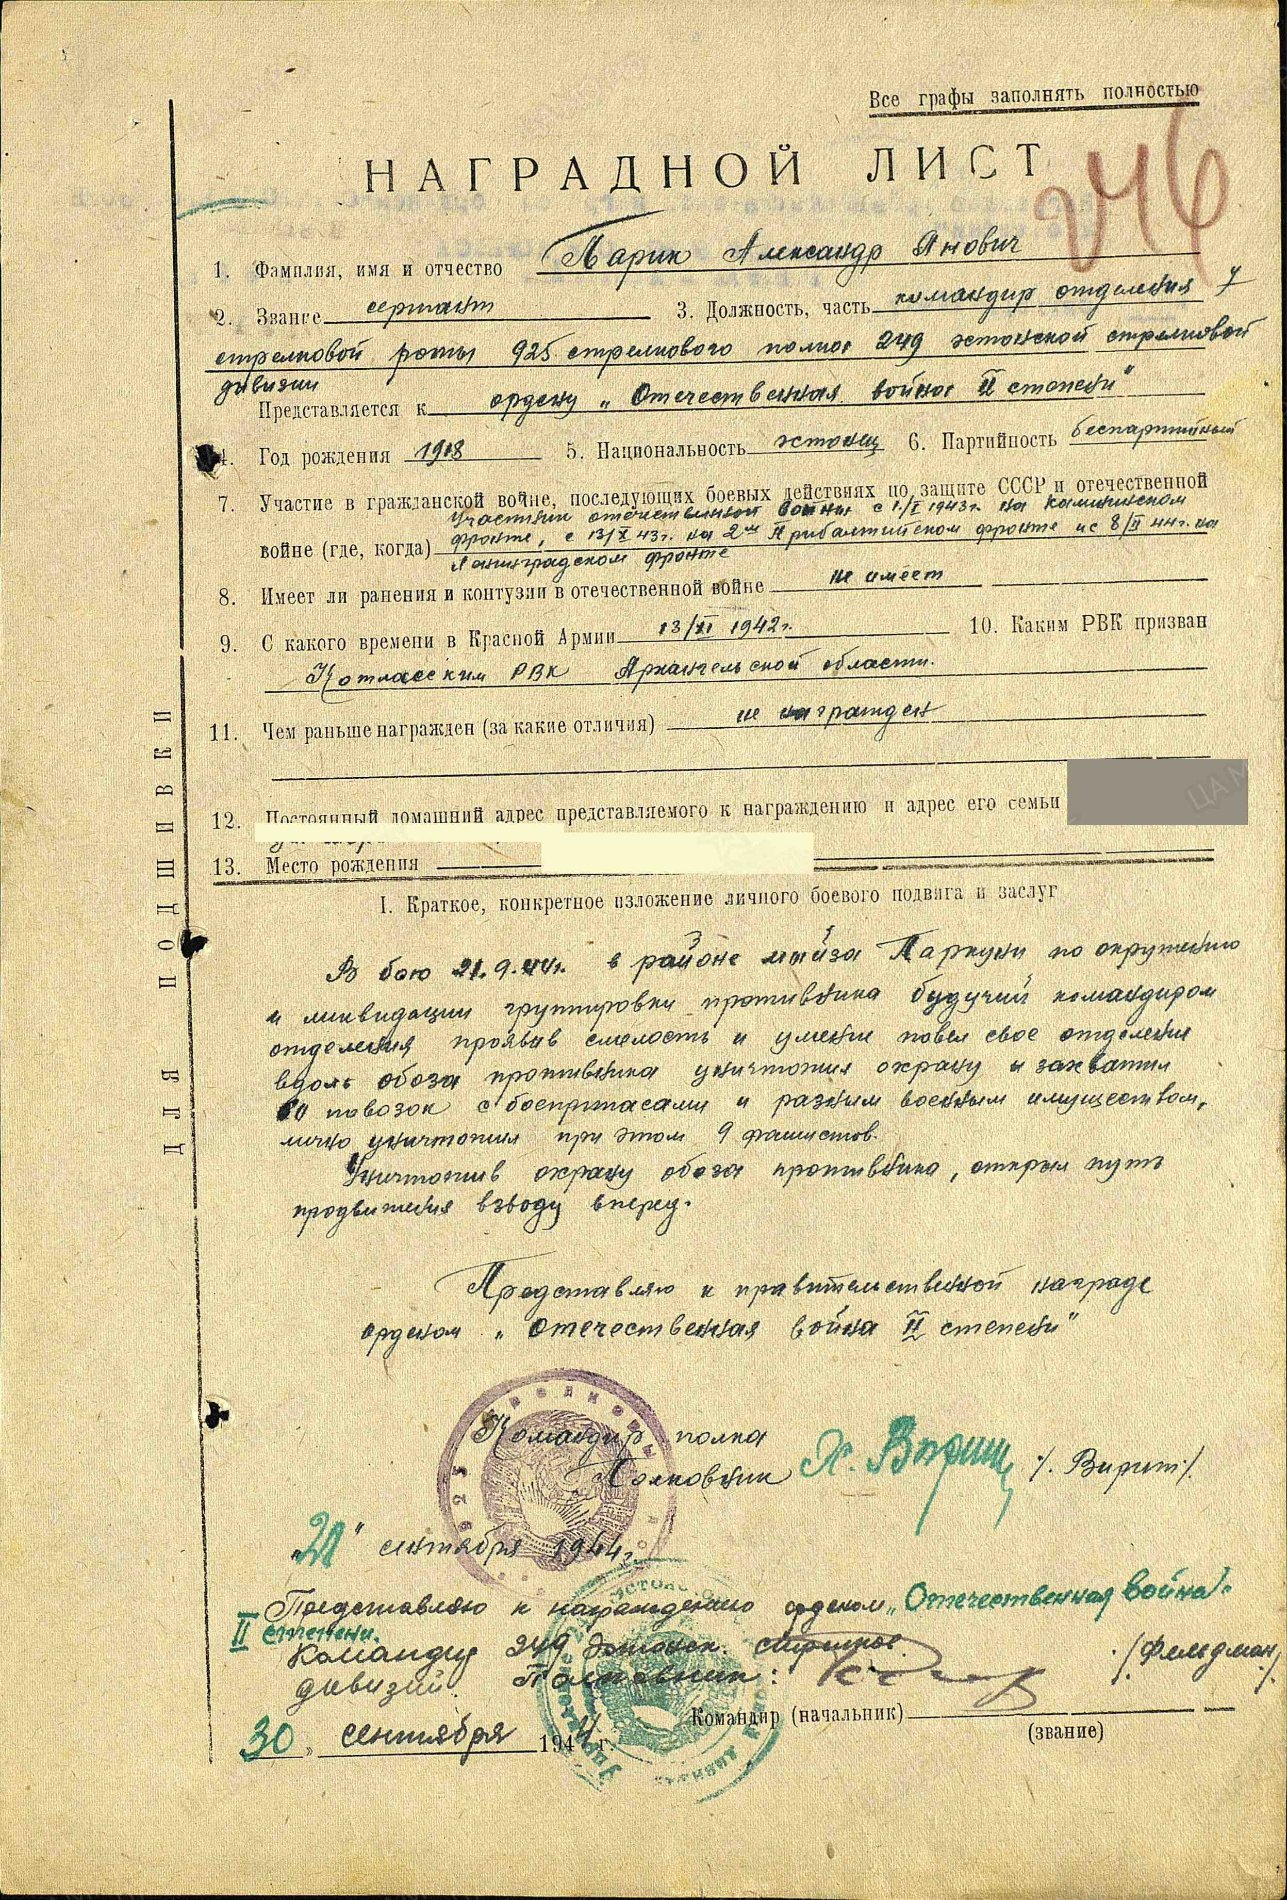 Все графы заполнять полностью
НАГРАДНОЙ ЛИСТ
246
1. Фамилия, имя и отчество Парик Александр Янович
2. Звание сержант 3. Должность, часть командир отделения 7
стрелковой роты 925 стрелкового полка 249 эстонской стрелковой
дивизии
Представляется к ордену „Отечественная война II степени"
4. Год рождения 1918 5. Национальность эстонец 6. Партийность беспартийный
7. Участие в гражданской войне, последующих боевых действиях по защите СССР и отечественной
Участник отечественной войны с 1/I 1943г. на Калининском
войне (где, когда) фронте, с 13/X 43г. на 2ом Прибалтийском фронте и с 8/II 44г. на
Ленинградском фронте
8. Имеет ли ранения и контузии в отечественной войне не имеет
9. С какого времени в Красной Армии 13/II 1942г. 10. Каким РВК призван
Котласским РВК Архангельской области.
11. Чем раньше награжден (за какие отличия) не награжден
12. Постоянный домашний адрес представляемого к награждению и адрес его семьи
13. Место рождения
I. Краткое, конкретное изложение личного боевого подвига и заслуг
В бою 21.9.44г. в районе мыза Паркуни по окружению
и ликвидации группировки противника будучи командиром
отделения проявив смелость и умение повел свое отделение
вдоль обоза противника уничтожил охрану и захватил
повозок с боеприпасами и разным военным имуществом,
лично уничтожил при этом 9 фашистов.
Уничтожив охрану обоза противника, открыл путь
продвижения взводу вперед.
Представляю к правительственной награде
орденом „Отечественная война II степени"
Командир полка
Полковник Х. Вирит /. Вирит /.
„ " сентября 1944г.
Представляю к награждению орденом „Отечественная война"
II степени.
Командир 249 Эстонск. стрелков.
дивизии Полковник: /Фельдман/
Командир (начальник)
(звание)
30 „ сентября 1944 г.
ДЛЯ ПОДШИВКИ